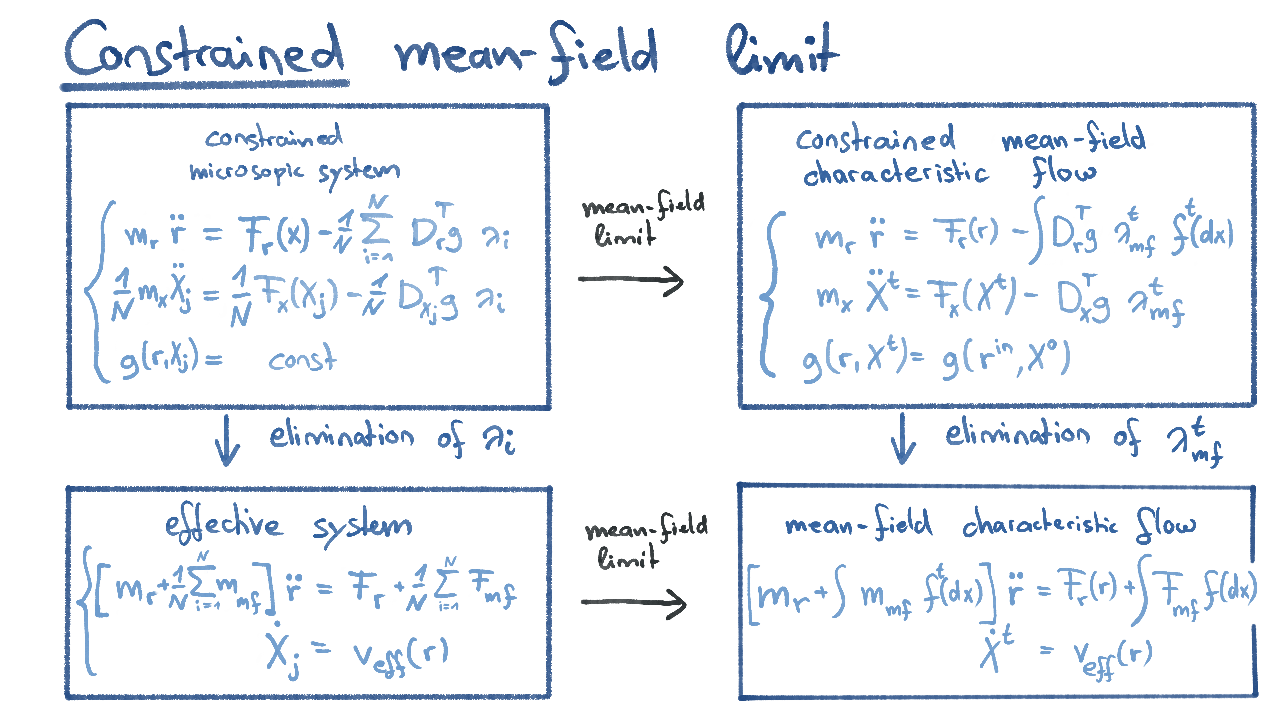 Constrained mean-field limit
constrained
microsopic system
m_r r̈ = F_r(x) - 1/N ∑_{i=1}^N D_r^T g λ_i
1/N m_x Ẍ_j = 1/N F_x(X_j) - 1/N D_{x_j}^T g λ_i
g(r,X_j) = const
mean-field
limit
constrained mean-field
characteristic flow
m_r r̈ = F_r(r) - ∫ D_r^T g λ_mf^t f^t(dx)
m_x Ẍ^t = F_x(X^t) - D_x^T g λ_mf^t
g(r, X^t) = g(r^in, X^0)
elimination of λ_i
elimination of λ_mf^t
effective system
[m_r + 1/N ∑_{i=1}^N m_mf] r̈ = F_r + 1/N ∑_{i=1}^N F_mf
Ẋ_j = v_eff(r)
mean-field
limit
mean-field characteristic flow
[m_r + ∫ m_mf f^t(dx)] r̈ = F_r(r) + ∫ F_mf f(dx)
Ẋ^t = v_eff(r)